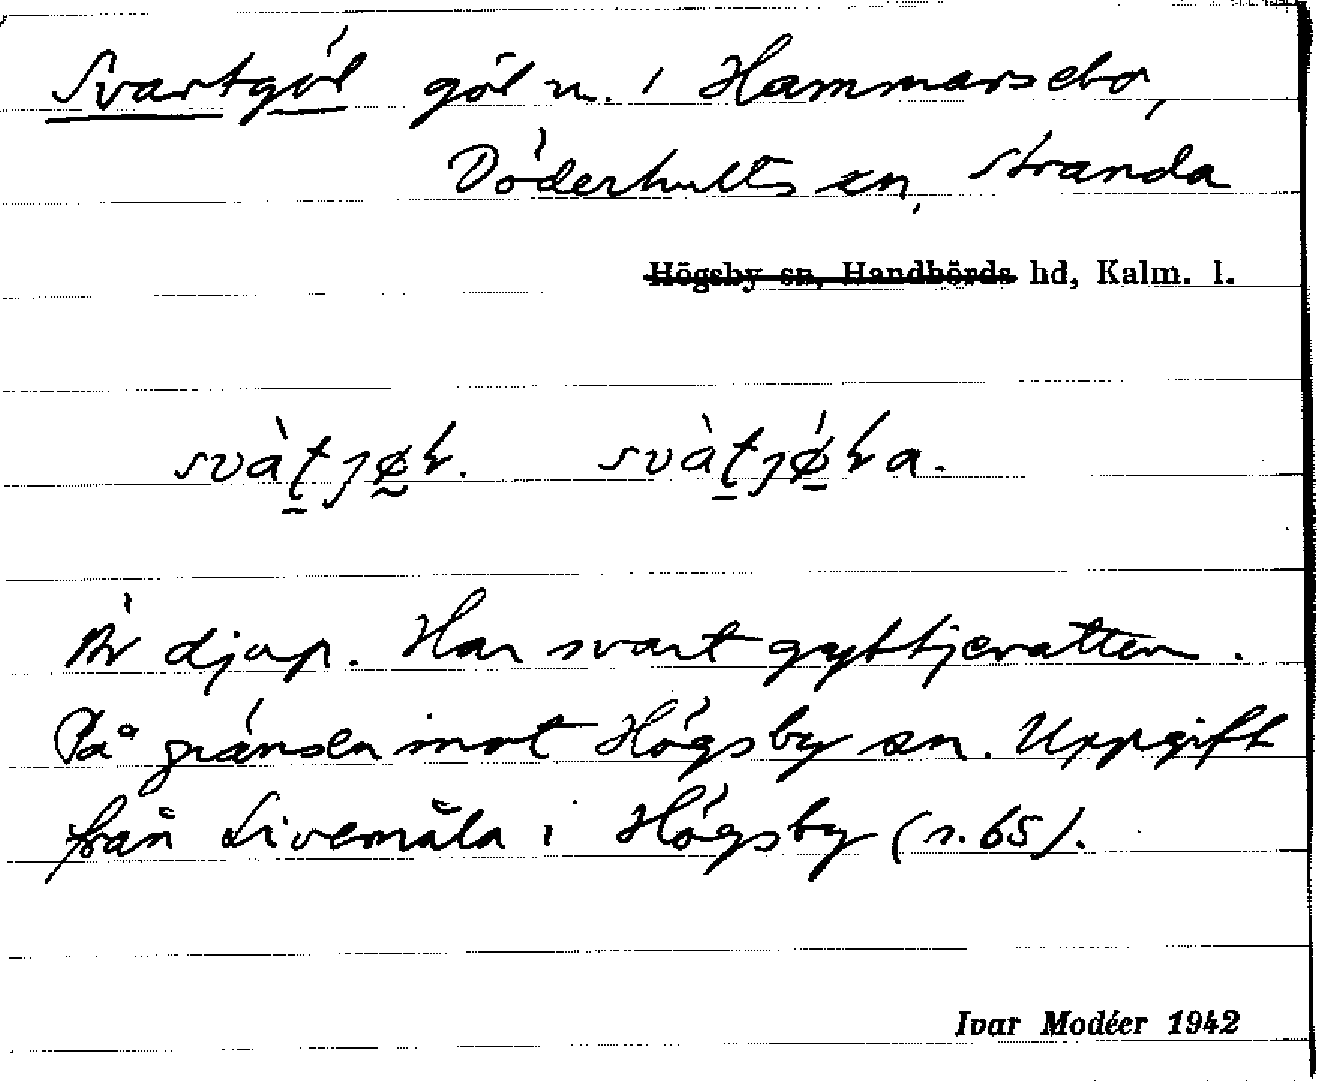 Svartgöl göl n. i Hammarsebo,
Döderhults sn, Stranda
Högsby sn, Handbörds hd, Kalm. l.
Är djup. Har svart gyttjevatten.
På gränsen mot Högsby sn. Uppgift
från Livemåla i Högsby (s. 65).
Ivar Modéer 1942